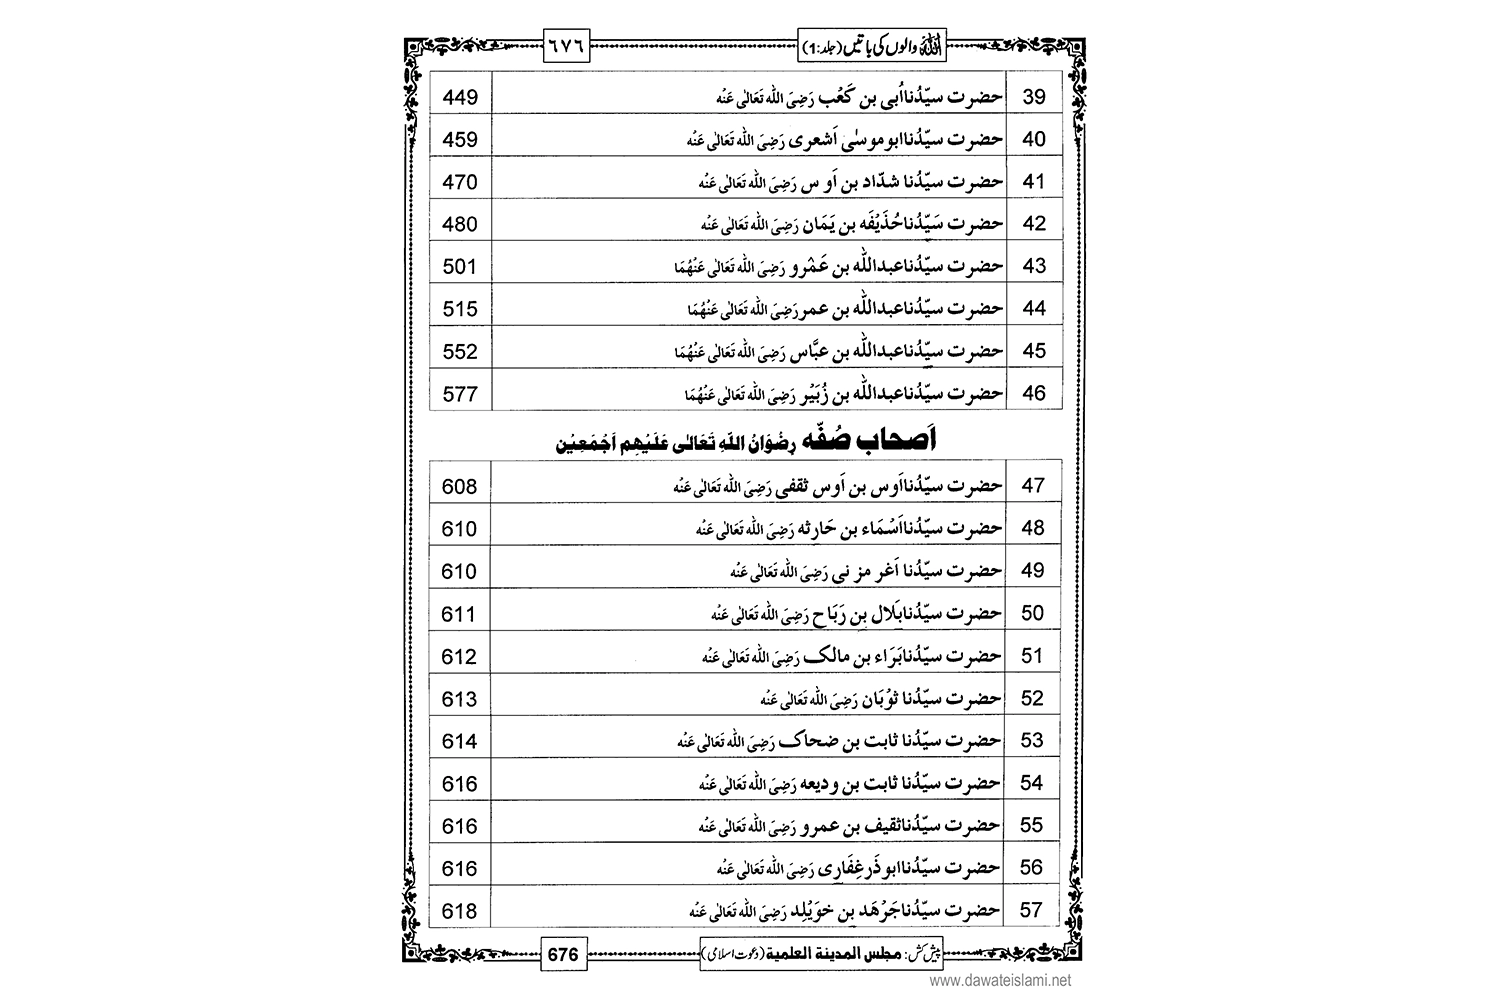 اللہ والوں کی باتیں (جلد:1) ٦٧٦
39 حضرت سیّدُنا اُبی بن کَعۡب رَضِیَ اللہ تَعَالٰی عَنۡہ 449
40 حضرت سیّدُنا ابو موسٰی اَشعری رَضِیَ اللہ تَعَالٰی عَنۡہ 459
41 حضرت سیّدُنا شدّاد بن اَوس رَضِیَ اللہ تَعَالٰی عَنۡہ 470
42 حضرت سَیّدُنا حُذَیۡفَہ بن یَمَان رَضِیَ اللہ تَعَالٰی عَنۡہ 480
43 حضرت سیّدُنا عبداللہ بن عَمۡرو رَضِیَ اللہ تَعَالٰی عَنۡہُمَا 501
44 حضرت سیّدُنا عبداللہ بن عمر رَضِیَ اللہ تَعَالٰی عَنۡہُمَا 515
45 حضرت سیّدُنا عبداللہ بن عبَّاس رَضِیَ اللہ تَعَالٰی عَنۡہُمَا 552
46 حضرت سیّدُنا عبداللہ بن زُبَیۡر رَضِیَ اللہ تَعَالٰی عَنۡہُمَا 577
اَصحابِ صُفّہ رِضۡوَانُ اللّٰہِ تَعَالٰی عَلَیۡہِم اَجۡمَعِیۡن
47 حضرت سیّدُنا اَوس بن اَوس ثقفی رَضِیَ اللہ تَعَالٰی عَنۡہ 608
48 حضرت سیّدُنا اَسۡمَاء بن حَارِثہ رَضِیَ اللہ تَعَالٰی عَنۡہ 610
49 حضرت سیّدُنا اَغر مزنی رَضِیَ اللہ تَعَالٰی عَنۡہ 610
50 حضرت سیّدُنا بَلال بن رَبَاح رَضِیَ اللہ تَعَالٰی عَنۡہ 611
51 حضرت سیّدُنا بَرَاء بن مالک رَضِیَ اللہ تَعَالٰی عَنۡہ 612
52 حضرت سیّدُنا ثوۡبَان رَضِیَ اللہ تَعَالٰی عَنۡہ 613
53 حضرت سیّدُنا ثابت بن ضحاک رَضِیَ اللہ تَعَالٰی عَنۡہ 614
54 حضرت سیّدُنا ثابت بن ودیعہ رَضِیَ اللہ تَعَالٰی عَنۡہ 616
55 حضرت سیّدُنا ثقیف بن عمرو رَضِیَ اللہ تَعَالٰی عَنۡہ 616
56 حضرت سیّدُنا ابو ذَر غِفَارِی رَضِیَ اللہ تَعَالٰی عَنۡہ 616
57 حضرت سیّدُنا جَرۡہَد بن خوَیۡلِد رَضِیَ اللہ تَعَالٰی عَنۡہ 618
پیش کش: مجلس المدینۃ العلمیۃ (دعوت اسلامی) 676
www.dawateislami.net